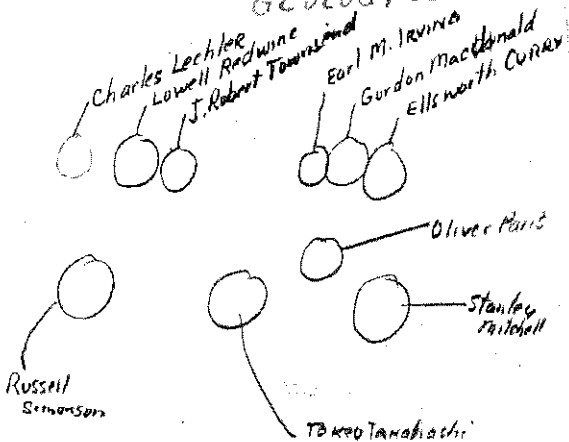 GEOLOGY
Charles Lechler
Lowell Redwine
J. Robert Townsend
Earl M. IRVING
Gordon MacDonald
Ellsworth CURRAY
Oliver Paris
Stanley
Mitchell
Russell
Simonson
Takeo Takahashi